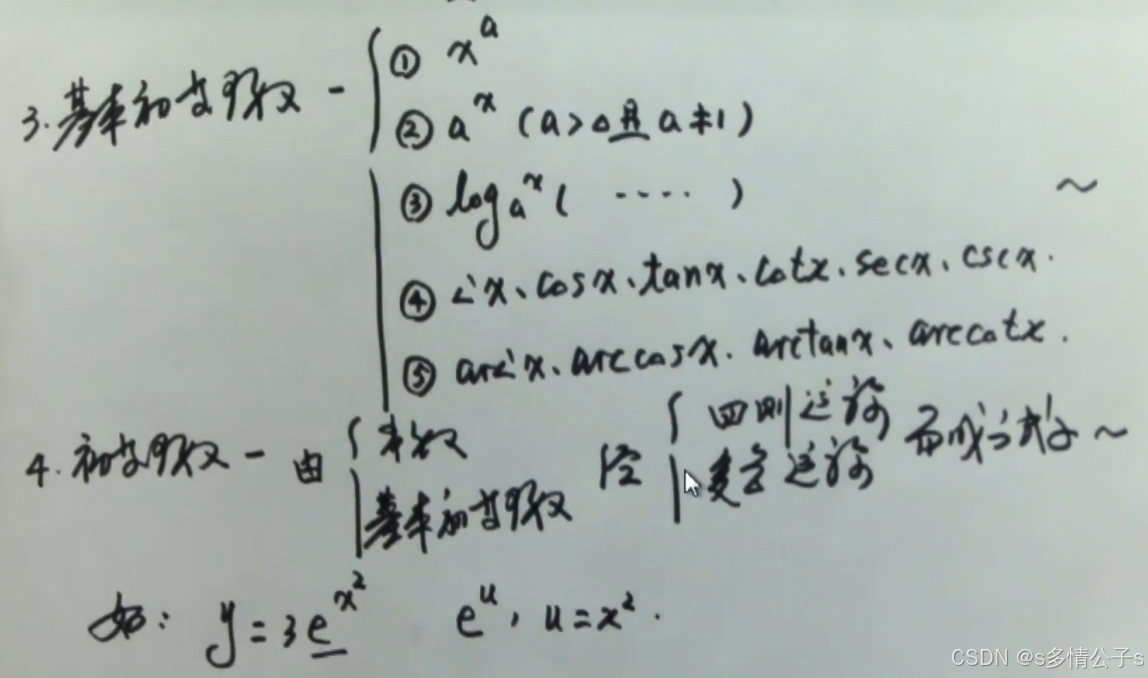 3. 基本初等函数 -
① x^a
② a^x (a>0且a≠1)
③ log_a^x ( ···· ) ~
④ sinx、cosx、tanx、cotx、secx、cscx.
⑤ arcsinx、arccosx. arctanx、arccotx.
4. 初等函数 - 由 { 常数 基本初等函数 经 { 四则运算 复合运算 而成之式子 ~
如: y=3e^{x^2} e^u, u=x^2.
CSDN @s多情公子s